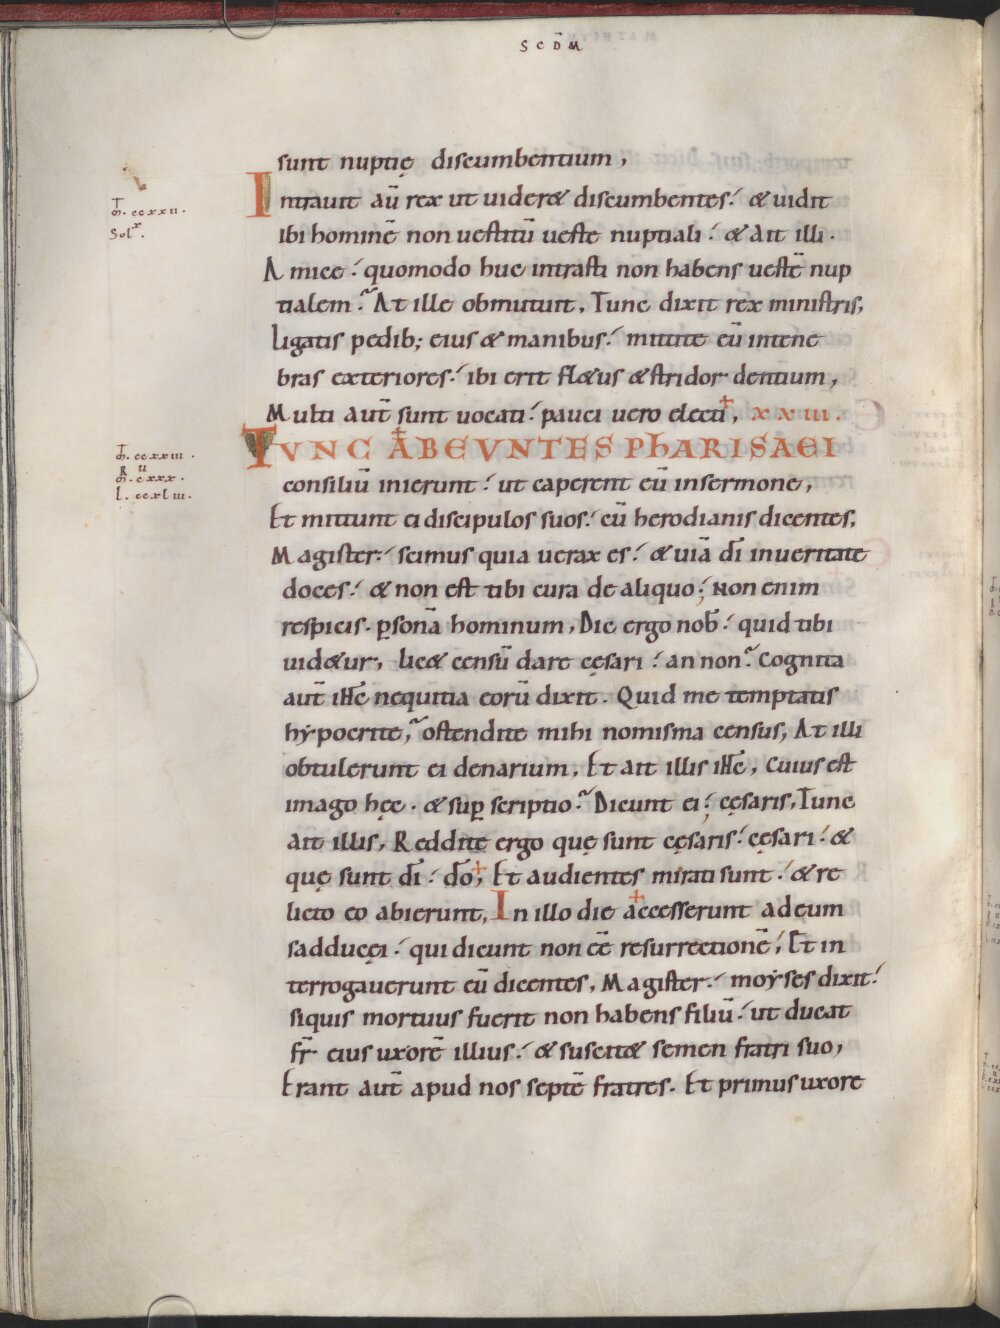 SCDM̄
sunt nuptię discumbentium,
Intrauit aū rex ut uideret discumbentes. & uidit
ibi hominē non uestitū ueste nuptiali. & ait illi.
Amice. quomodo huc intrasti non habens uestē nup
tialem? At ille obmutuit. Tunc dixit rex ministris,
ligatis pedib; eius & manibus. mittite eū intene
bras exteriores. ibi erit fl&us & stridor dentium,
Multi aut̄ sunt uocati. pauci uero electi, xxiii.
TVNC ABEVNTES PhARISAEI
consiliū inierunt. ut caperent eū insermone,
Et mittunt ei discipulos suos. cū herodianis dicentes,
Magister. scimus quia uerax es. & uiā dī inueritate
doces. & non est tibi cura de aliquo; Non enim
respicis. psonā hominum, Dic ergo nob̄. quid tibi
uid&ur, lic& censū dare cęsari. an non? Cognita
aut̄ ih̄c nequitia eorū dixit. Quid me temptatis
hẏpocrite, ostendite mihi nomisma census, At illi
obtulerunt ei denarium, Et ait illis ih̄c, Cuius est
imago hęc. & sup scriptio? Dicunt ei; cęsaris, Tunc
ait illis, Reddite ergo quę sunt cęsaris. cęsari. &
quę sunt dī. dō, Et audientes mirati sunt. & re
licto eo abierunt, In illo die accesserunt adeum
sadducęi. qui dicunt non eē resurrectionē, Et in
terrogauerunt eū dicentes, Magister. moẏses dixit.
siquis mortuus fuerit non habens filiū. ut ducat
fr̄ eius uxorē illius. & suscit& semen fratri suo,
Erant aut̄ apud nos septē fratres. Et primus uxore
m̄. ccxxii.
Solx.
m̄. ccxxiii.
R u
m̄. cxxx.
l. ccxliii.